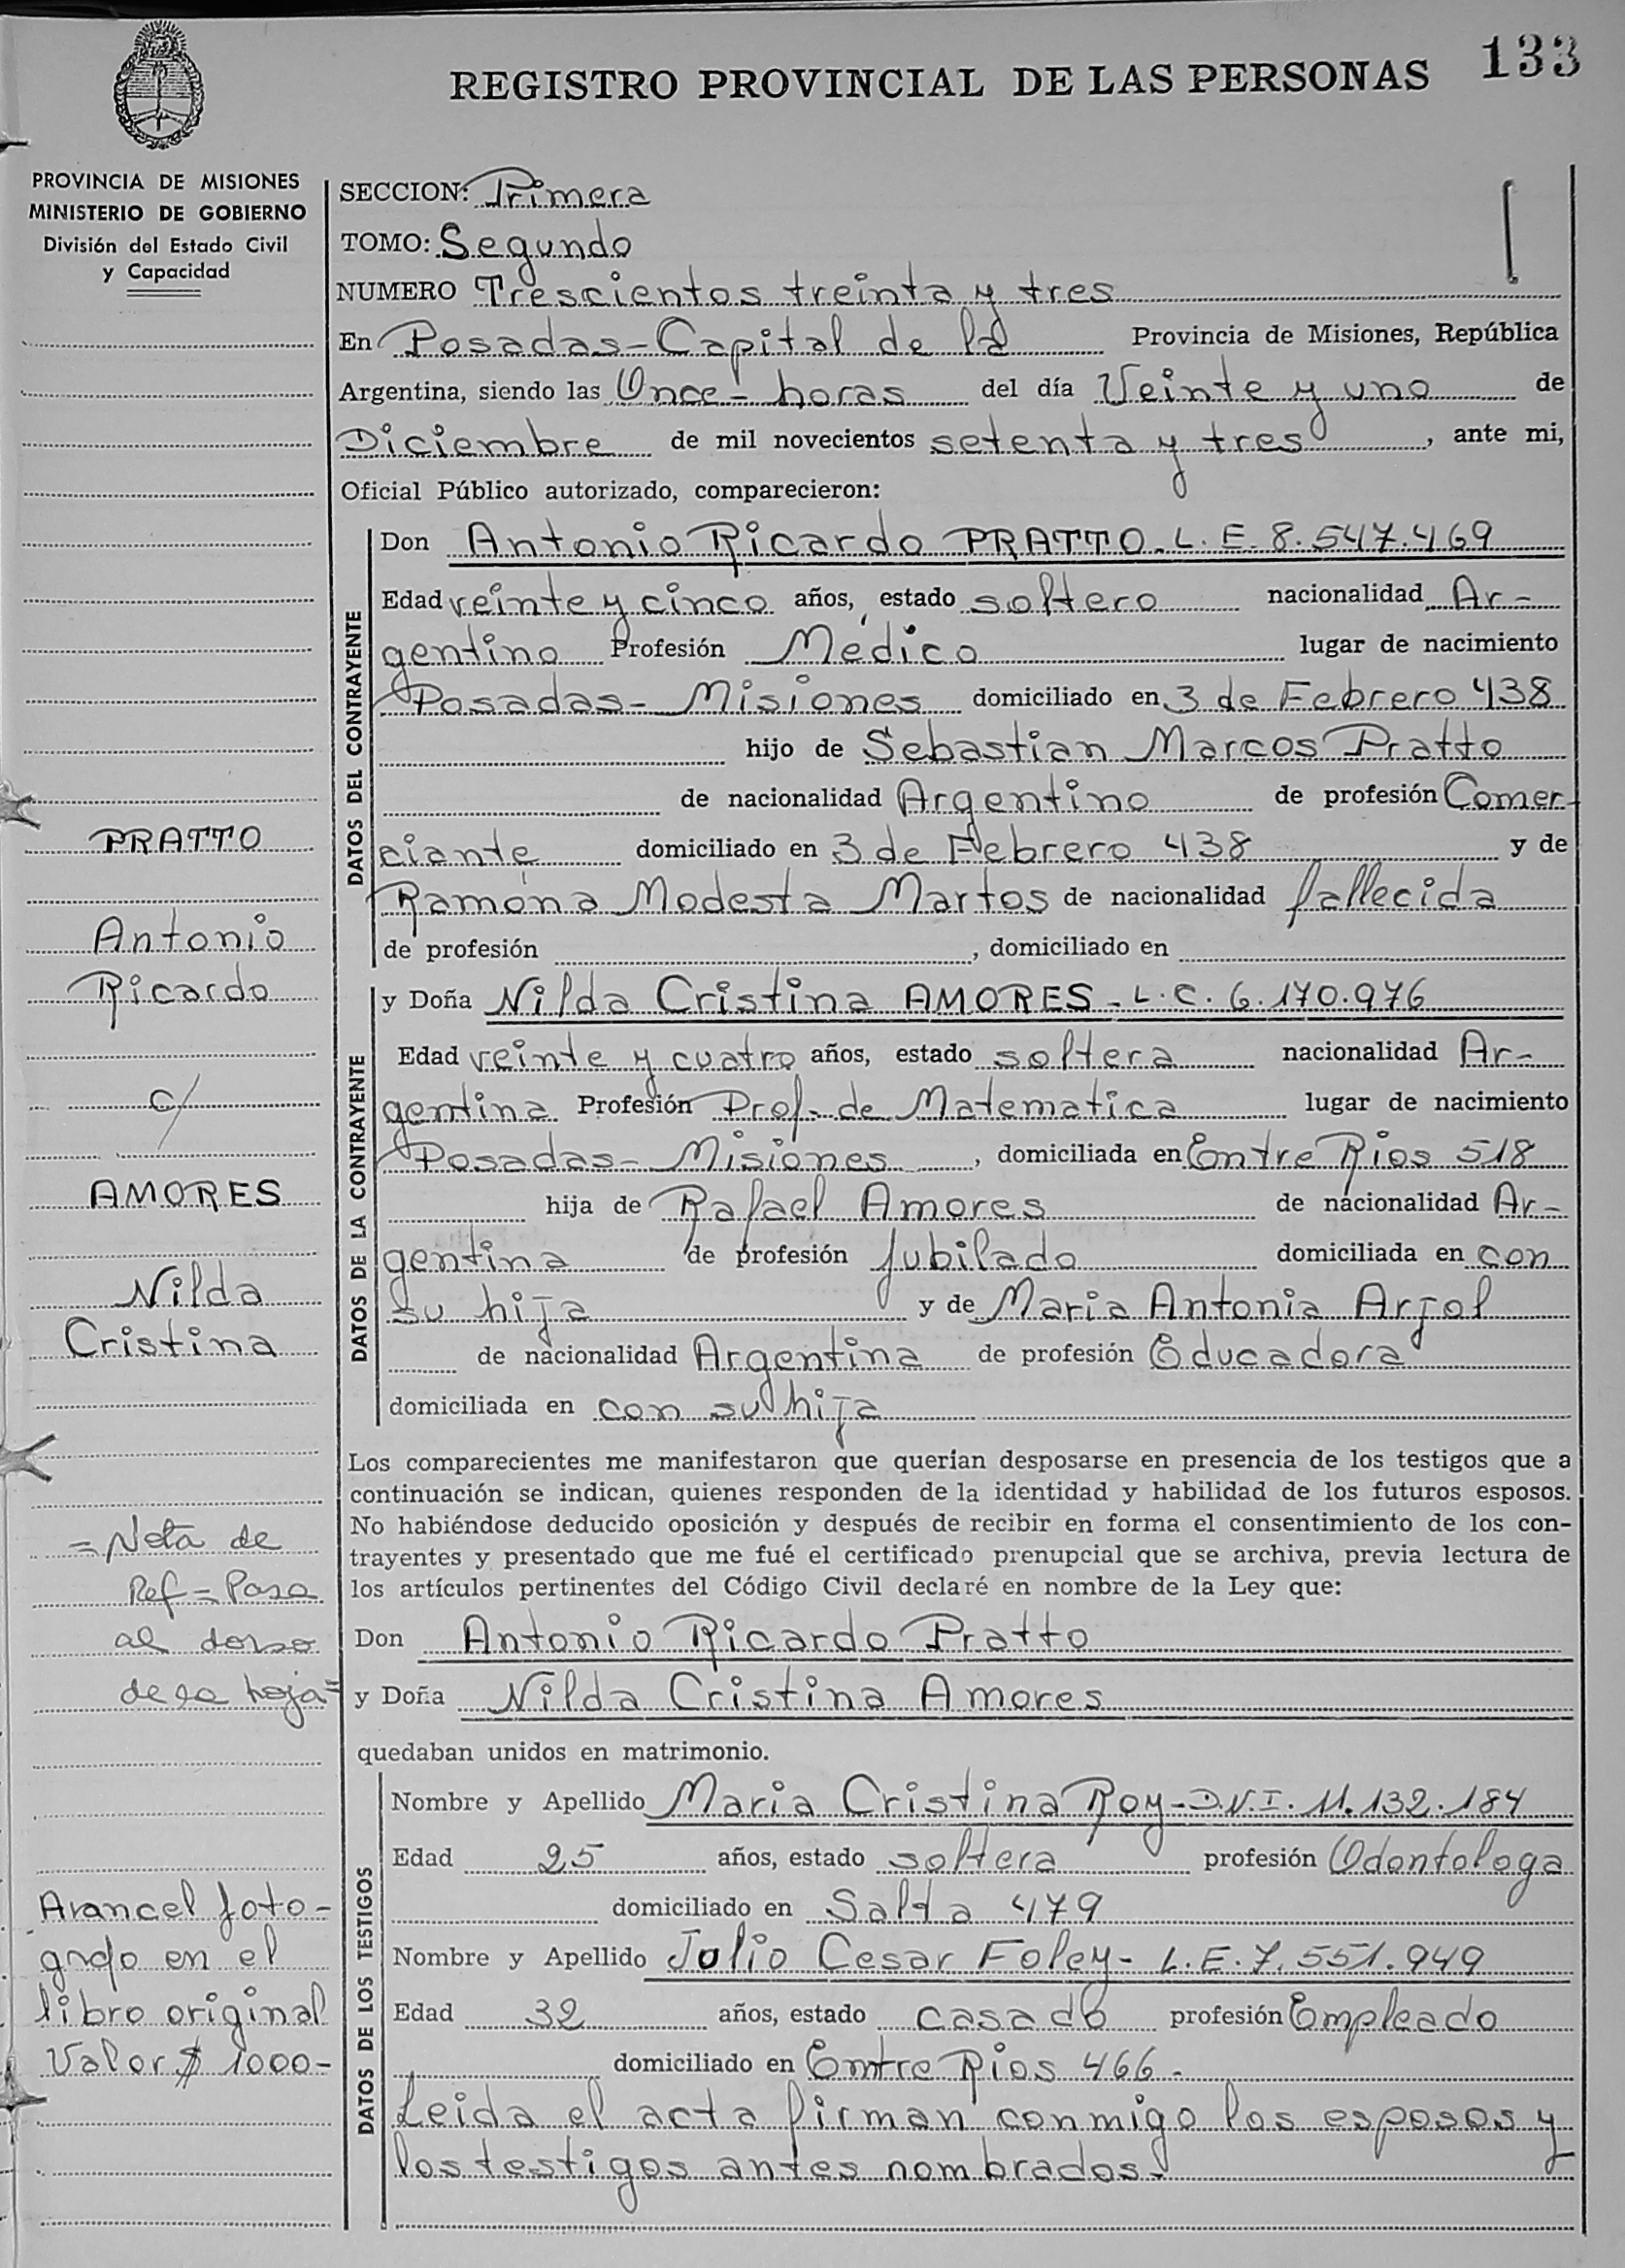 REGISTRO PROVINCIAL DE LAS PERSONAS 133
PROVINCIA DE MISIONES
MINISTERIO DE GOBIERNO
División del Estado Civil
y Capacidad
SECCION: Primera
TOMO: Segundo
NUMERO Trescientos treinta y tres
En Posadas - Capital de la Provincia de Misiones, República
Argentina, siendo las Once - horas del día Veinte y uno de
Diciembre de mil novecientos setenta y tres, ante mi,
Oficial Público autorizado, comparecieron:
DATOS DEL CONTRAYENTE
Don Antonio Ricardo PRATTO - L. E. 8.547.469
Edad veinte y cinco años, estado soltero nacionalidad Ar-
gentino Profesión Médico lugar de nacimiento
Posadas - Misiones domiciliado en 3 de Febrero 438
hijo de Sebastian Marcos Pratto
de nacionalidad Argentino de profesión Comer-
ciante domiciliado en 3 de Febrero 438 y de
Ramona Modesta Martos de nacionalidad fallecida
de profesión , domiciliado en
DATOS DE LA CONTRAYENTE
y Doña Nilda Cristina AMORES - L. C. 6.170.976
Edad veinte y cuatro años, estado soltera nacionalidad Ar-
gentina Profesión Prof. de Matematica lugar de nacimiento
Posadas - Misiones , domiciliada en Entre Rios 518
hija de Rafael Amores de nacionalidad Ar-
gentina de profesión Jubilado domiciliada en con
su hija y de Maria Antonia Arjol
de nacionalidad Argentina de profesión Educadora
domiciliada en con su hija
Los comparecientes me manifestaron que querían desposarse en presencia de los testigos que a
continuación se indican, quienes responden de la identidad y habilidad de los futuros esposos.
No habiéndose deducido oposición y después de recibir en forma el consentimiento de los con-
trayentes y presentado que me fué el certificado prenupcial que se archiva, previa lectura de
los artículos pertinentes del Código Civil declaré en nombre de la Ley que:
Don Antonio Ricardo Pratto
y Doña Nilda Cristina Amores
quedaban unidos en matrimonio.
DATOS DE LOS TESTIGOS
Nombre y Apellido Maria Cristina Roy - D.N.I. 11.132.184
Edad 25 años, estado soltera profesión Odontologa
domiciliado en Salta 479
Nombre y Apellido Julio Cesar Foley - L. E. 7.551.949
Edad 32 años, estado casado profesión Empleado
domiciliado en Entre Rios 466 -
Leida el acta firman conmigo los esposos y
los testigos antes nombrados.
PRATTO
Antonio
Ricardo
c/
AMORES
Nilda
Cristina
= Nota de
Ref = Pasa
al dorso
de la hoja =
Arancel foto-
grdo en el
libro original
Valor $ 1000-